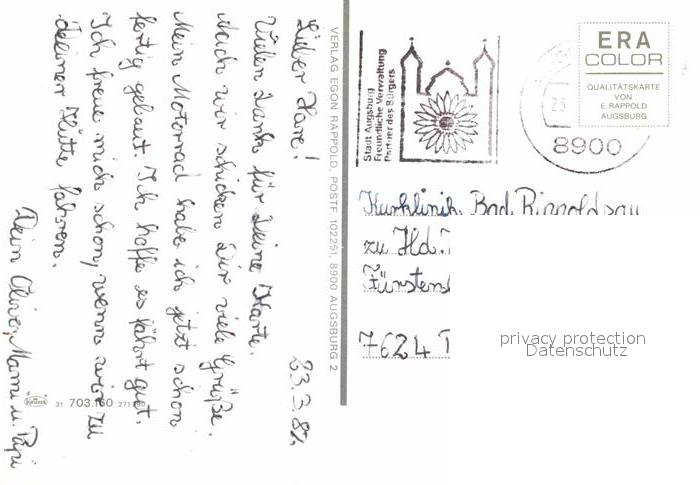 23.3.82
Lieber Xare!
Vielen Dank für Deine Karte.
Auch wir schicken Dir viele Grüße.
Mein Motorrad habe ich jetzt schon
fertig gebaut. Ich hoffe es fährt gut.
Ich freue mich schon, wenn wir zu
deiner Hütte fahren.
Dein Oliver, Mami u. Papi
VERLAG EGON RAPPOLD, POSTF 102251, 8900 AUGSBURG 2
31. 703.160
Stadt Augsburg
Freundliche Verwaltung
Partner des Bürgers
8900
ERA
COLOR
QUALITÄTSKARTE
VON
E. RAPPOLD
AUGSBURG
Kurklinik Bad Rippoldsau
zu Hd.
Fürstens
7624
privacy protection
Datenschutz